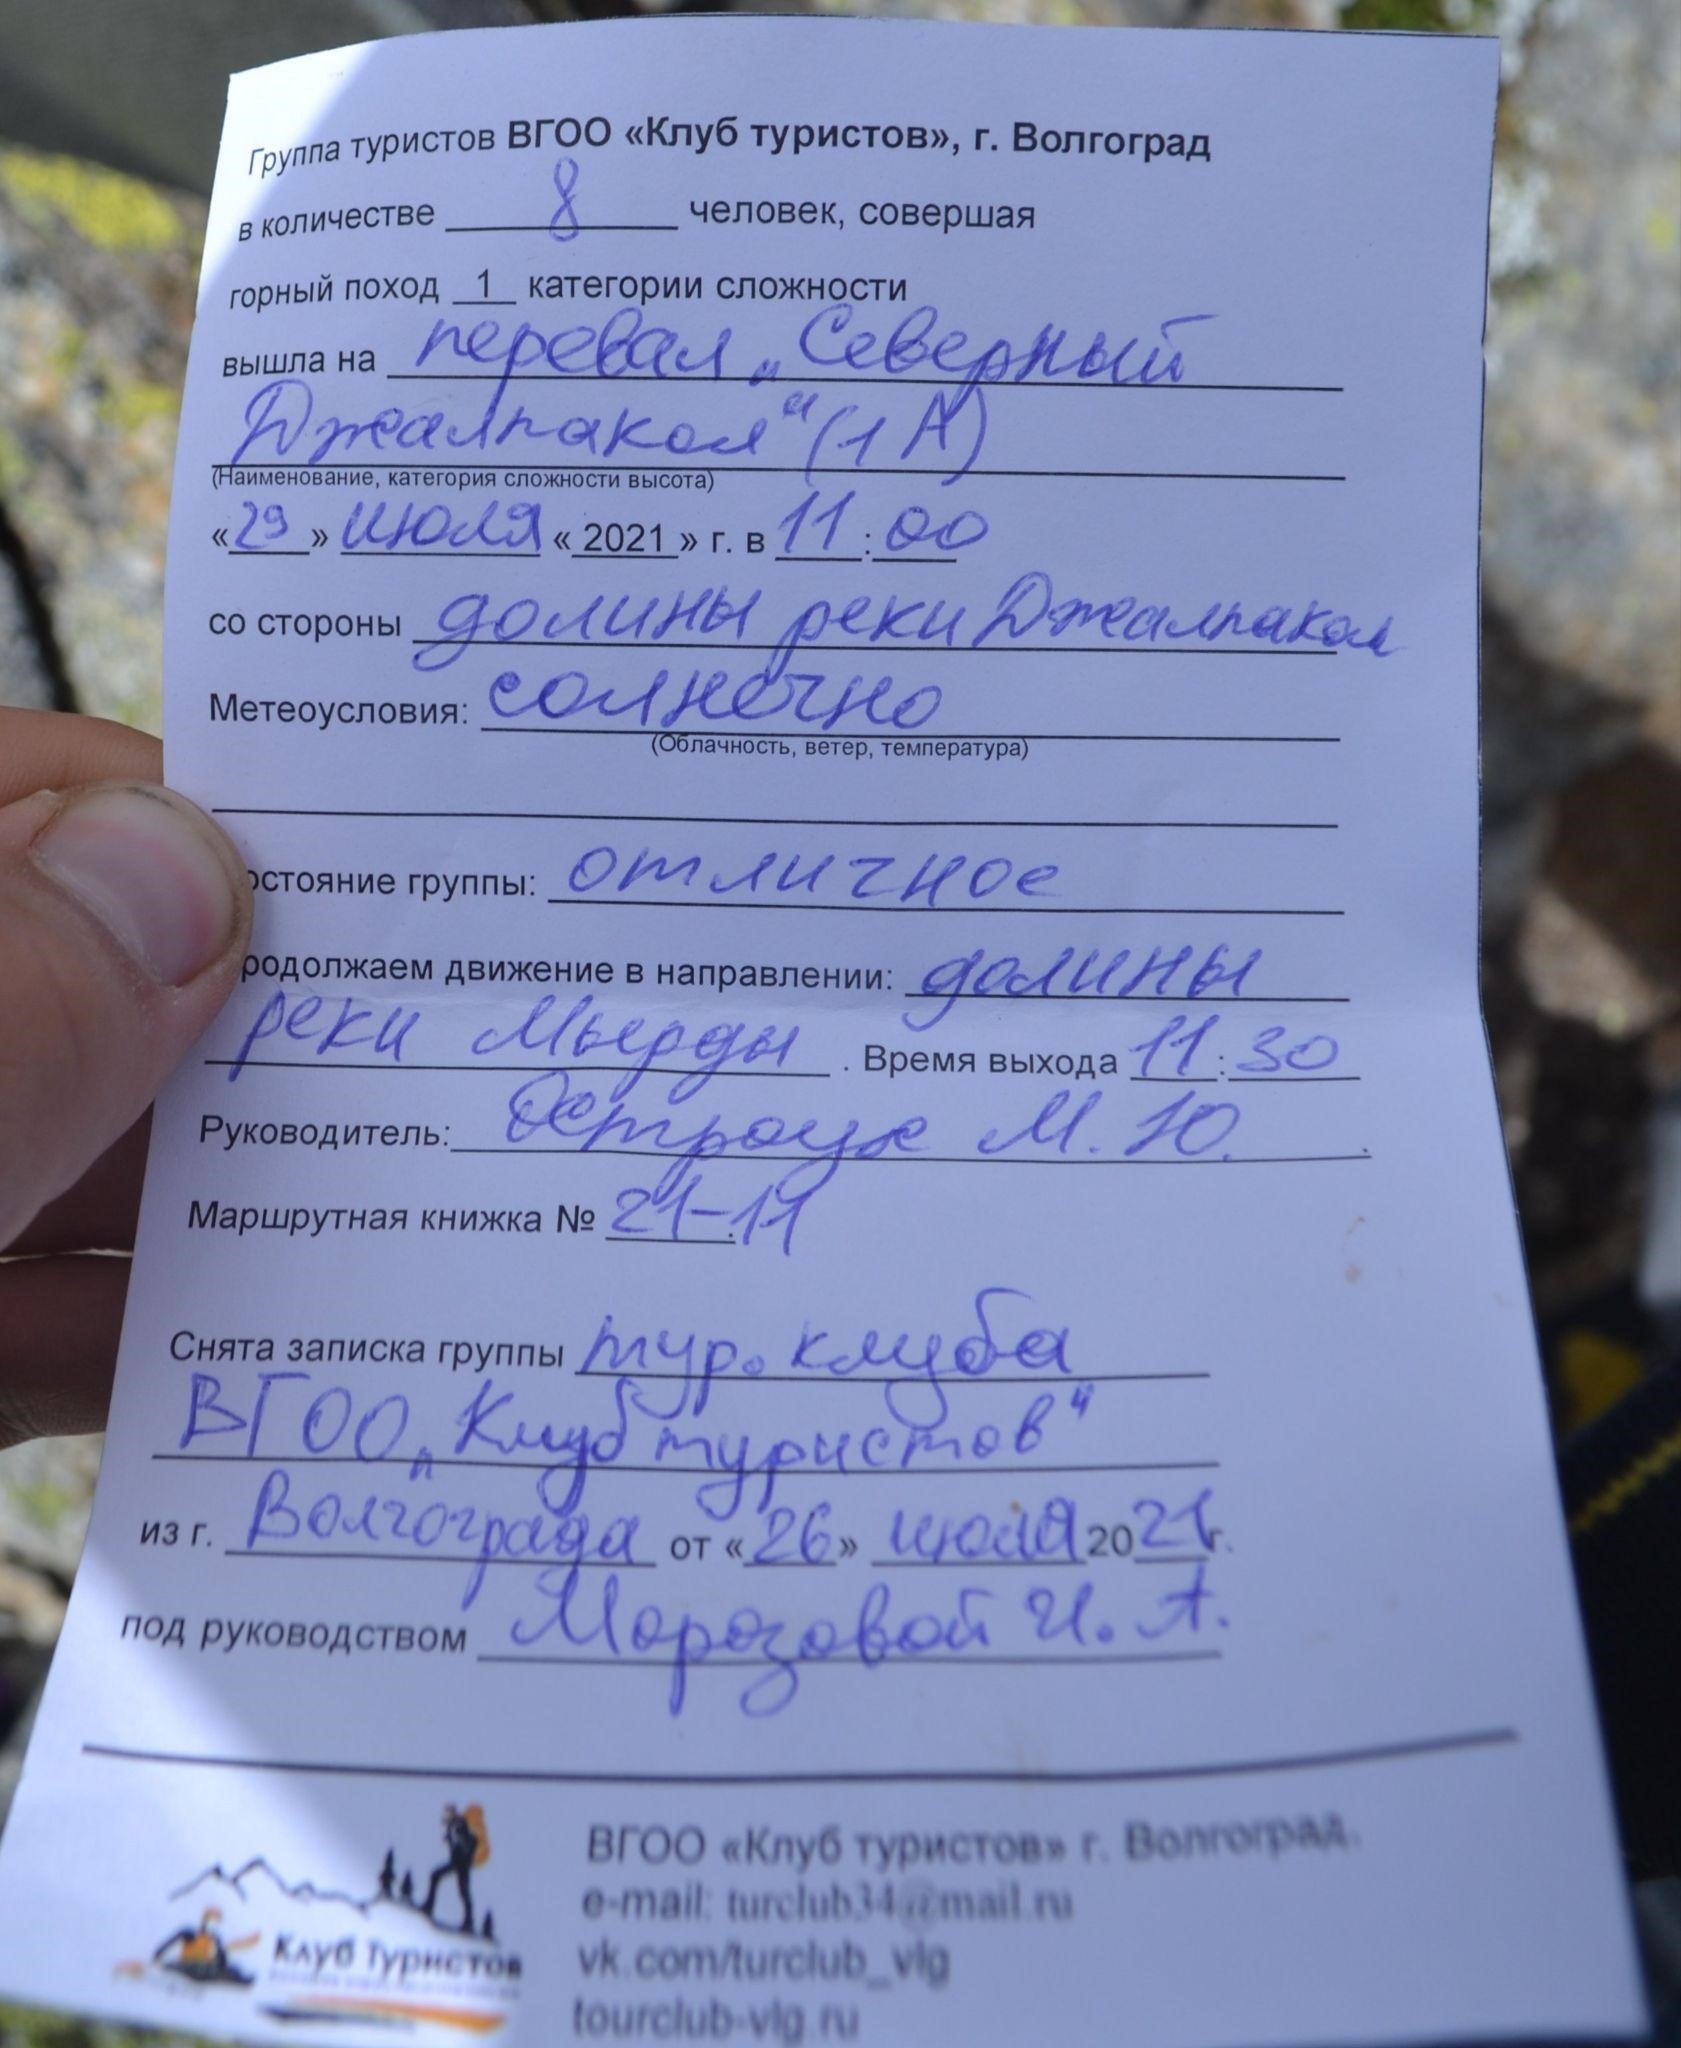 Группа туристов ВГОО «Клуб туристов», г. Волгоград
в количестве 8 человек, совершая
горный поход 1 категории сложности
вышла на перевал „Северный
Джалпакол“ (1А)
(Наименование, категория сложности высота)
«29» июля «2021» г. в 11:00
со стороны долины реки Джалпакол
Метеоусловия: солнечно
(Облачность, ветер, температура)
остояние группы: отличное
родолжаем движение в направлении: долины
реки Мырды . Время выхода 11:30
Руководитель: М. Ю.
Маршрутная книжка № 21-11
Снята записка группы тур. клуба
ВГОО „Клуб туристов“
из г. Волгограда от «26» июля 2021г.
под руководством Морозовой И. А.
ВГОО «Клуб туристов» г. Волгоград.
e-mail: turclub34@mail.ru
vk.com/turclub_vlg
tourclub-vlg.ru
Клуб Туристов